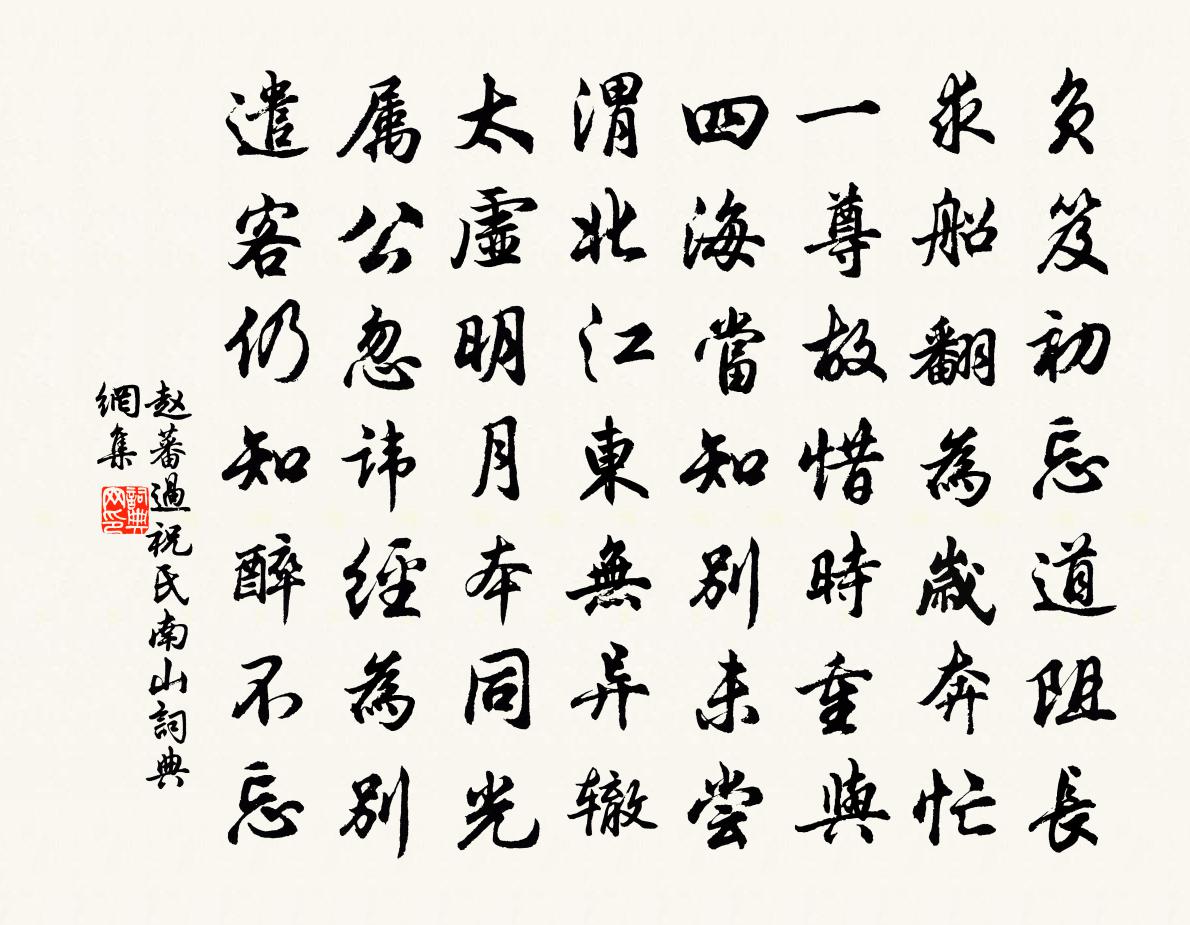 负笈初忘道阻長
求船翻為歲奔忙
一尊故惜時重與
四海當知別未尝
渭北江東無异辙
太虛明月本同光
属公忽讳經為別
遣客仍知醉不忘
赵蕃過祝氏南山詞典
網集
詞典
网印